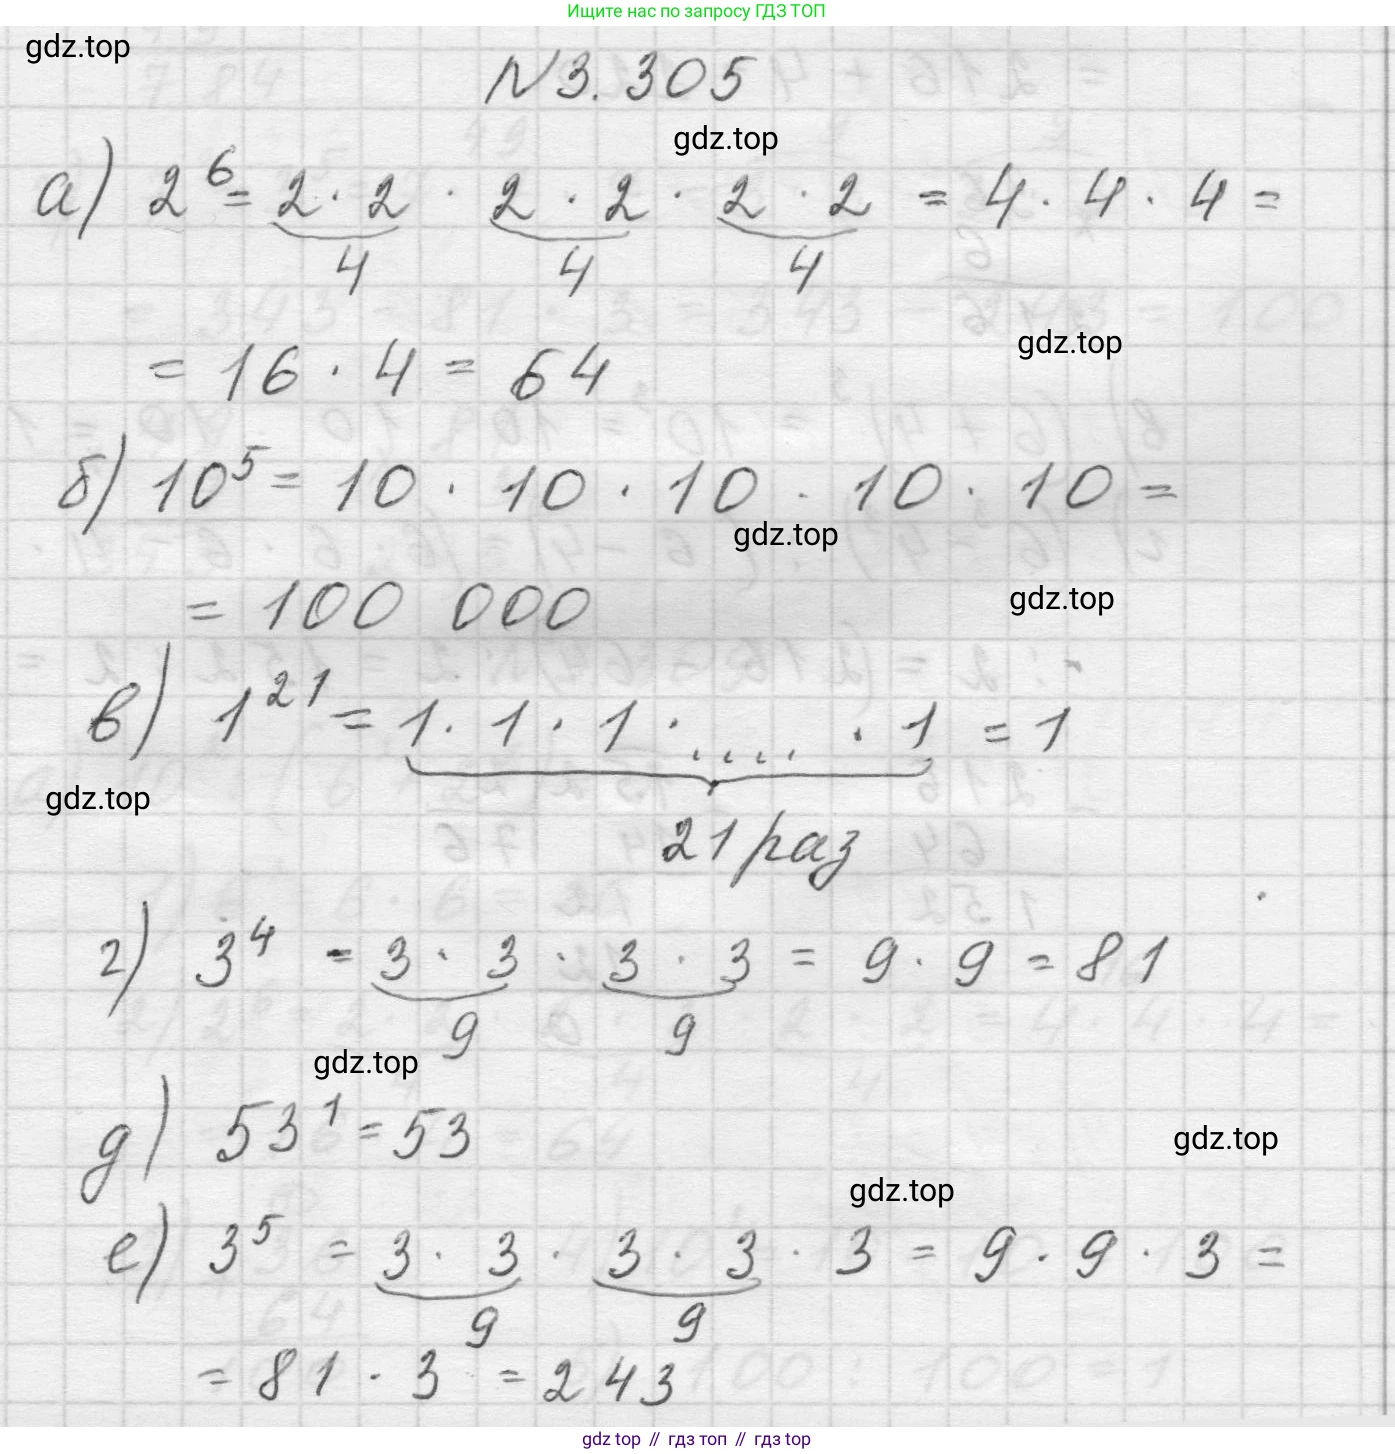 Ищите нас по запросу ГДЗ ТОП
gdz.top
N3.305
gdz.top
а) 2^6 = 2 · 2 · 2 · 2 · 2 · 2 = 4 · 4 · 4 =
4 4 4
gdz.top
= 16 · 4 = 64
б) 10^5 = 10 · 10 · 10 · 10 · 10 =
gdz.top
= 100 000
gdz.top
в) 1^21 = 1 · 1 · 1 · .... · 1 = 1
gdz.top
21 раз
г) 3^4 = 3 · 3 · 3 · 3 = 9 · 9 = 81
9 9
gdz.top
д) 53^1 = 53
gdz.top
gdz.top
е) 3^5 = 3 · 3 · 3 · 3 · 3 = 9 · 9 · 3 =
9 9
= 81 · 3 = 243
gdz top // гдз топ // гдз top